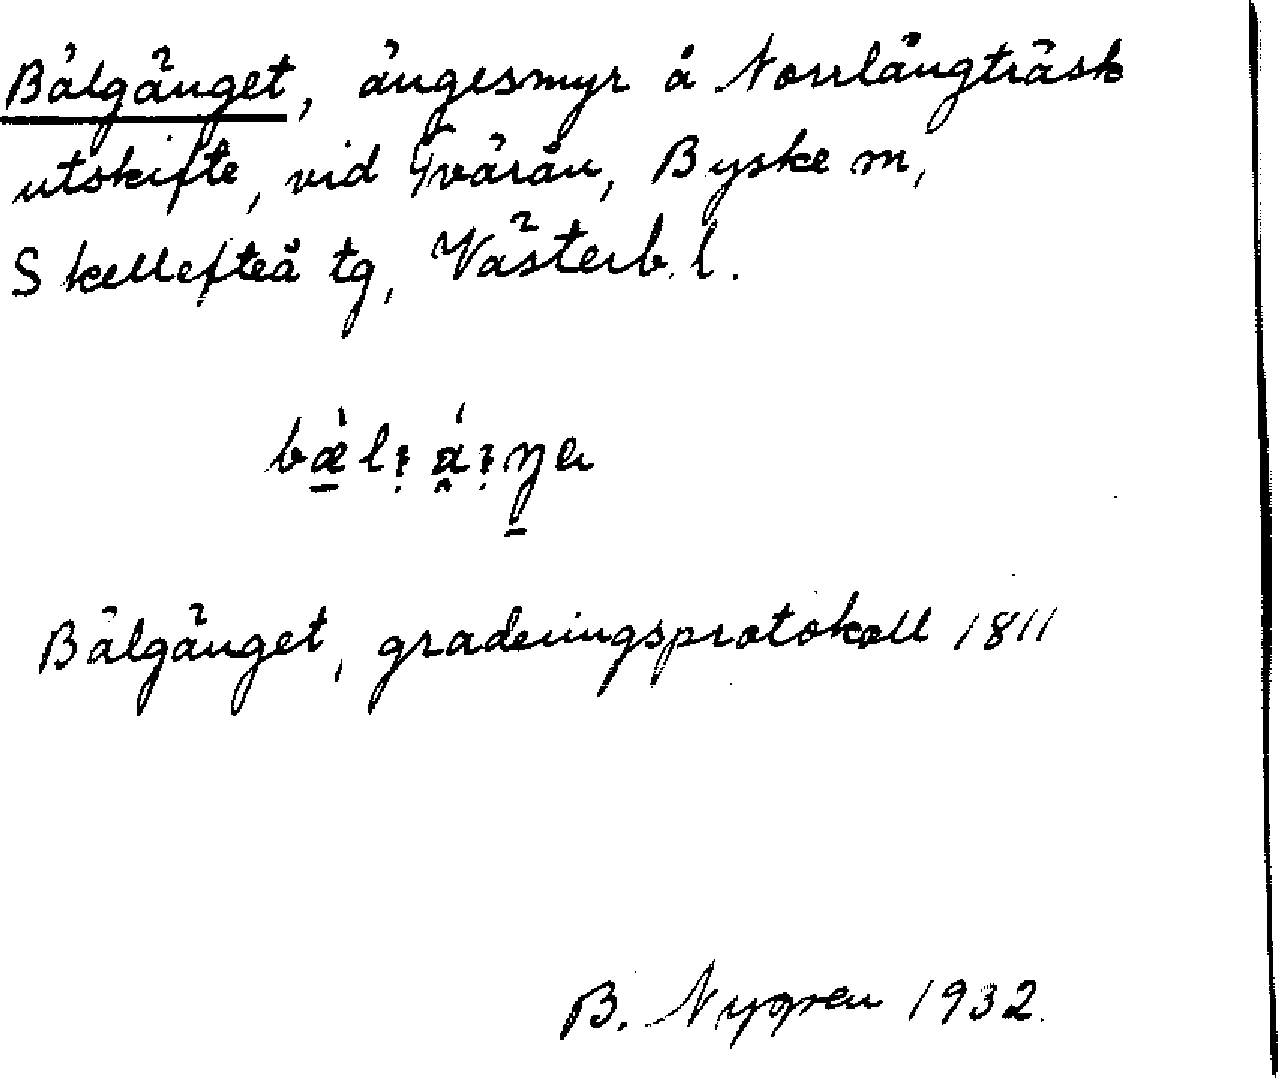 Bälgänget, ängesmyr å Norrlångträsk
utskifte, vid Tvärån, Byske sn,
Skellefteå tg, Västerb. l.
Bälgänget, graderingsprotokoll 1811
B. Nygren 1932.